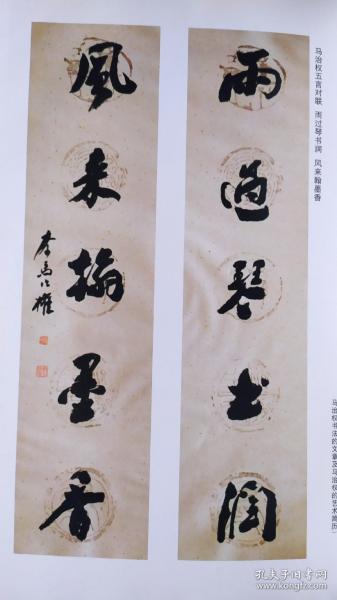 马治权五言对联 雨过琴书润 风来翰墨香
雨過琴书潤
風来翰墨香
马治权书法的文章及马治权的艺术简历
孔夫子旧书网